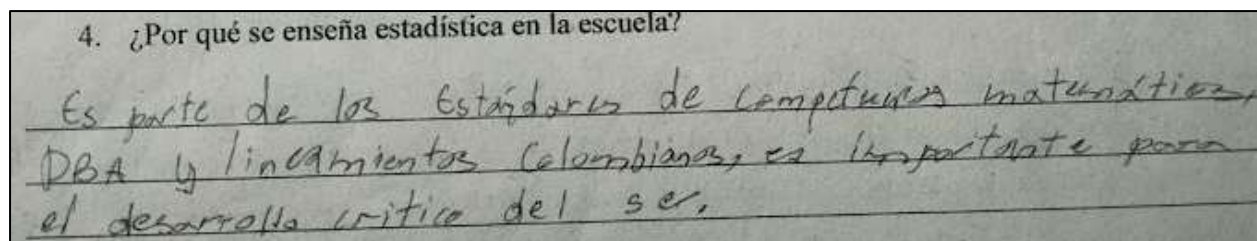 4. ¿Por qué se enseña estadística en la escuela?
Es parte de los Estándares de competencias matemáticas,
DBA y lineamientos Colombianos, es importante para
el desarrollo critico del ser.